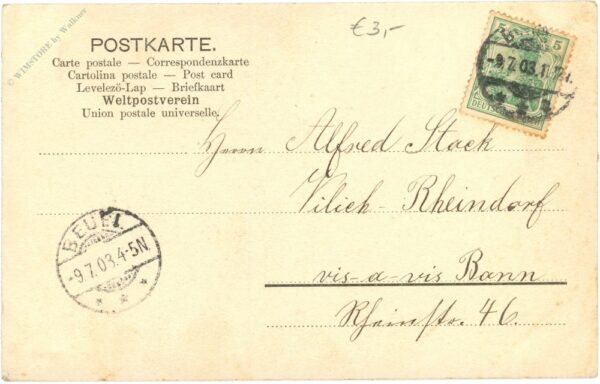 © WIMSTORE by Walkner
€3,-
POSTKARTE.
Carte postale — Correspondenzkarte
Cartolina postale — Post card
Levelező-Lap — Briefkaart
Weltpostverein
Union postale universelle.
5 5
-9.7.03.11
DEUTSCHES
Herrn Alfred Stack
Vilich-Rheindorf
vis-a-vis Bonn
Rheinstr. 46.
BEUEL
-9.7.03.4-5N.